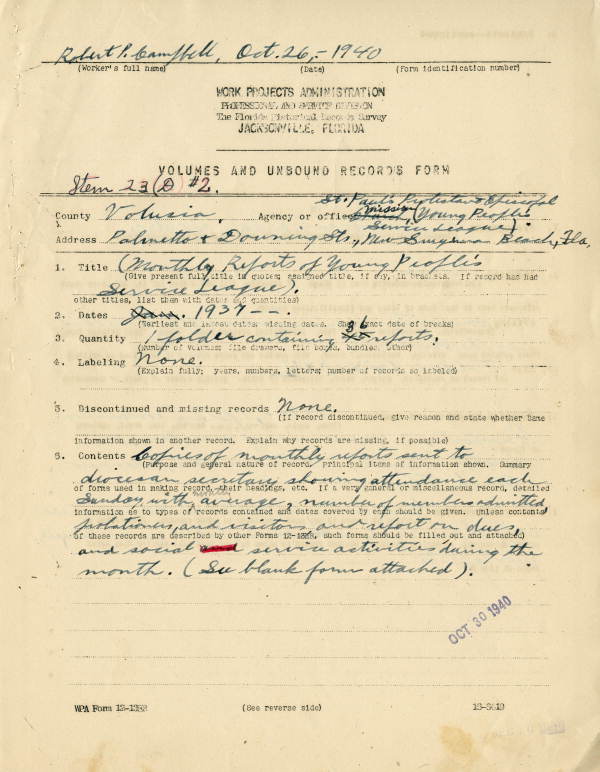 Robert P. Campbell, Oct. 26, - 1940
(Worker's full name) (Date) (Form identification number)
WORK PROJECTS ADMINISTRATION
PROFESSIONAL AND SERVICE DIVISION
The Florida Historical Records Survey
JACKSONVILLE, FLORIDA
VOLUMES AND UNBOUND RECORDS FORM
Item 23 (D) #2.
St. Paul's Protestant Episcopal
County Volusia. Agency or office Mission (Young People's
Service League)
Address Palmetto & Downing Sts., New Smyrna Beach, Fla.
1. Title (Monthly Reports of Young People's
(Give present full title in quotes; assigned title, if any, in brackets. If record has had
Service League).
other titles, list them with dates and quantities)
2. Dates Jan. 1937 --.
(Earliest and latest dates; missing dates. Show exact date of breaks)
3. Quantity 1 folder containing 36 reports.
(Number of volumes; file drawers, file boxes, bundles, other)
4. Labeling None.
(Explain fully; years, numbers, letters; number of records so labeled)
5. Discontinued and missing records None.
(If record discontinued, give reason and state whether same
information shown in another record. Explain why records are missing, if possible)
6. Contents Copies of monthly reports sent to
(Purpose and general nature of record, principal items of information shown. Summary
diocesan secretary showing attendance each
of forms used in making record, their headings, etc. If a very general or miscellaneous record, detailed
Sunday, with monthly average, number of members admitted
information as to types of records contained and dates covered by each should be given. Unless contents
probationers, and visitors and report on dues,
of these records are described by other Forms 12-13HR, such forms should be filled out and attached)
and social and service activities during the
month. (See blank form attached).
OCT 30 1940
WPA Form 12-13HR (See reverse side)